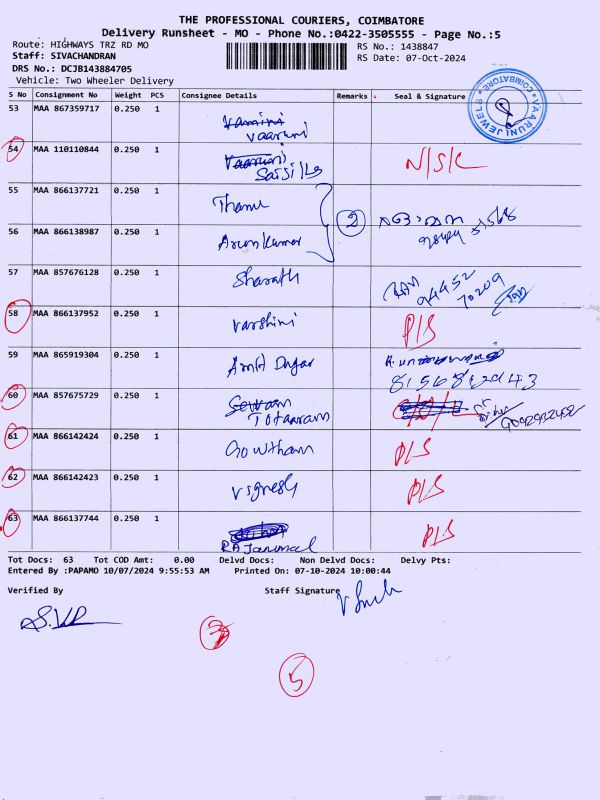 THE PROFESSIONAL COURIERS, COIMBATORE
Delivery Runsheet - MO - Phone No.:0422-3505555 - Page No.:5
Route: HIGHWAYS TRZ RD MO
RS No.: 1438847
Staff: SIVACHANDRAN
RS Date: 07-Oct-2024
DRS No.: DCJB143884705
Vehicle: Two Wheeler Delivery
VAARUNI JEWELS * COIMBATORE *
S No Consignment No Weight PCS Consignee Details Remarks Seal & Signature
53 MAA 867359717 0.250 1 Vamini
Vaaruni
54 MAA 110110844 0.250 1 Vaaruni N/S/L
55 MAA 866137721 0.250 1 Thanu
2
56 MAA 866138987 0.250 1 Arunkumar
57 MAA 857676128 0.250 1 Sharath
94452
70209
58 MAA 866137952 0.250 1 Varshini P/S
59 MAA 865919304 0.250 1 Amit Dugar
8156812943
60 MAA 857675729 0.250 1
Totaaram
61 MAA 866142424 0.250 1 Gowtham P/S
62 MAA 866142423 0.250 1 Vignesh P/S
63 MAA 866137744 0.250 1 P/S
RAJanmal
Tot Docs: 63 Tot COD Amt: 0.00 Delvd Docs: Non Delvd Docs: Delvy Pts:
Entered By :PAPAMO 10/07/2024 9:55:53 AM Printed On: 07-10-2024 10:00:44
Verified By Staff Signature
7
5